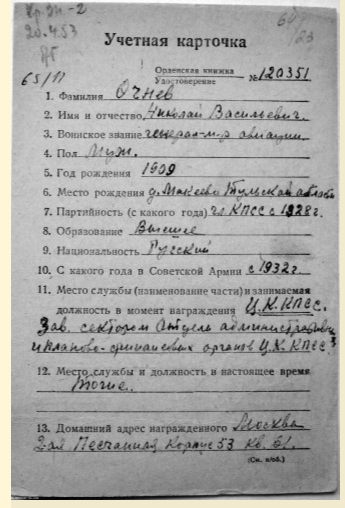 Кр. Зн.-2
20.4.53
65/11
Учетная карточка
Орденская книжка
Удостоверение № 120351
1. Фамилия Очнев
2. Имя и отчество Николай Васильевич.
3. Воинское звание генерал-м-р авиации
4. Пол Муж.
5. Год рождения 1909
6. Место рождения д. Макеево Тульской области
7. Партийность (с какого года) чл. КПСС с 1928 г.
8. Образование Высшее
9. Национальность Русский
10. С какого года в Советской Армии с 1932 г.
11. Место службы (наименование части) и занимаемая
должность в момент награждения Ц.К. КПСС.
Зав. сектором Отдела административн
и планово-финансовых органов Ц.К. КПСС
12. Место службы и должность в настоящее время
Тогие.
13. Домашний адрес награжденного Москва
2-ая Песчанная корпус 53 кв. 61.
(См. н/об.)